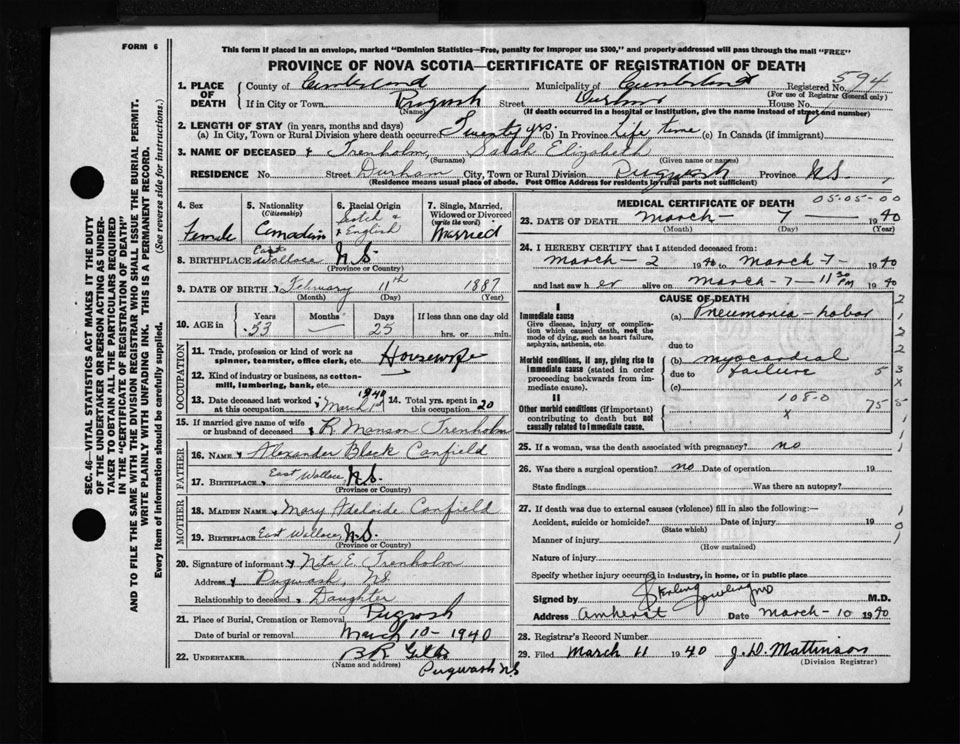 FORM 6
This form if placed in an envelope, marked "Dominion Statistics—Free, penalty for improper use $300," and properly addressed will pass through the mail "FREE"
PROVINCE OF NOVA SCOTIA—CERTIFICATE OF REGISTRATION OF DEATH
594
1. PLACE OF DEATH County of Cumberland Municipality of Cumberland Registered No.
(For use of Registrar General only)
If in City or Town Pugwash Street Durham House No.
(Name) (If death occurred in a hospital or institution, give the name instead of street and number)
2. LENGTH OF STAY (in years, months and days)
(a) In City, Town or Rural Division where death occurred Twenty yrs. (b) In Province Life time (c) In Canada (if immigrant)
3. NAME OF DECEASED Trenholm, Sarah Elizabeth
(Surname) (Given name or names)
RESIDENCE No. Street Durham City, Town or Rural Division Pugwash Province N.S.
(Residence means usual place of abode. Post Office Address for residents in rural parts not sufficient)
4. Sex Female
5. Nationality (Citizenship) Canadian
6. Racial Origin Scotch & English
7. Single, Married, Widowed or Divorced (write the word) Married
8. BIRTHPLACE East Wallace N.S.
(Province or Country)
9. DATE OF BIRTH February 11th 1887
(Month) (Day) (Year)
10. AGE in Years Months Days If less than one day old
53 — 25 hrs. or min.
OCCUPATION
11. Trade, profession or kind of work as spinner, teamster, office clerk, etc. Housewife
12. Kind of industry or business, as cotton-mill, lumbering, bank, etc.
13. Date deceased last worked at this occupation March 1940
14. Total yrs. spent in this occupation 20
15. If married give name of wife or husband of deceased R. Manson Trenholm
FATHER
16. NAME Alexander Black Canfield
17. BIRTHPLACE East Wallace, N.S.
(Province or Country)
MOTHER
18. MAIDEN NAME Mary Adelaide Canfield
19. BIRTHPLACE East Wallace, N.S.
(Province or Country)
20. Signature of informant Nita E. Trenholm
Address Pugwash, N.S.
Relationship to deceased Daughter
21. Place of Burial, Cremation or Removal Pugwash
Date of burial or removal March 10 - 1940
22. UNDERTAKER B R
(Name and address)
Pugwash N.S
MEDICAL CERTIFICATE OF DEATH
05-05-00
23. DATE OF DEATH March - 7 - 1940
(Month) (Day) (Year)
24. I HEREBY CERTIFY that I attended deceased from:
March - 2 1940 to March - 7 - 1940
and last saw her alive on March - 7 - 11 30 PM 1940
CAUSE OF DEATH
I
Immediate cause (a) Pneumonia - lobar
Give disease, injury or complication which caused death, not the mode of dying, such as heart failure, asphyxia, asthenia, etc.
due to
Morbid conditions, if any, giving rise to immediate cause (stated in order proceeding backwards from immediate cause). (b) myocardial
due to failure
(c)
108-0
II
Other morbid conditions (if important) contributing to death but not causally related to immediate cause. x
25. If a woman, was the death associated with pregnancy? no
26. Was there a surgical operation? no Date of operation 19
State findings Was there an autopsy?
27. If death was due to external causes (violence) fill in also the following:—
Accident, suicide or homicide? Date of injury 19
(State which)
Manner of injury
(How sustained)
Nature of injury
Specify whether injury occurred in industry, in home, or in public place
Signed by Sterling M.D.
Address Amherst Date March - 10 1940
28. Registrar's Record Number
29. Filed March 11 1940 J. D. Mattinson
(Division Registrar)
SEC. 46—VITAL STATISTICS ACT MAKES IT THE DUTY OF THE UNDERTAKER OR PERSON ACTING AS UNDERTAKER TO OBTAIN ALL THE PARTICULARS REQUIRED IN THE "CERTIFICATE OF REGISTRATION OF DEATH" AND TO FILE THE SAME WITH THE DIVISION REGISTRAR WHO SHALL ISSUE THE BURIAL PERMIT.
WRITE PLAINLY WITH UNFADING INK. THIS IS A PERMANENT RECORD.
Every item of information should be carefully supplied. (See reverse side for instructions.)